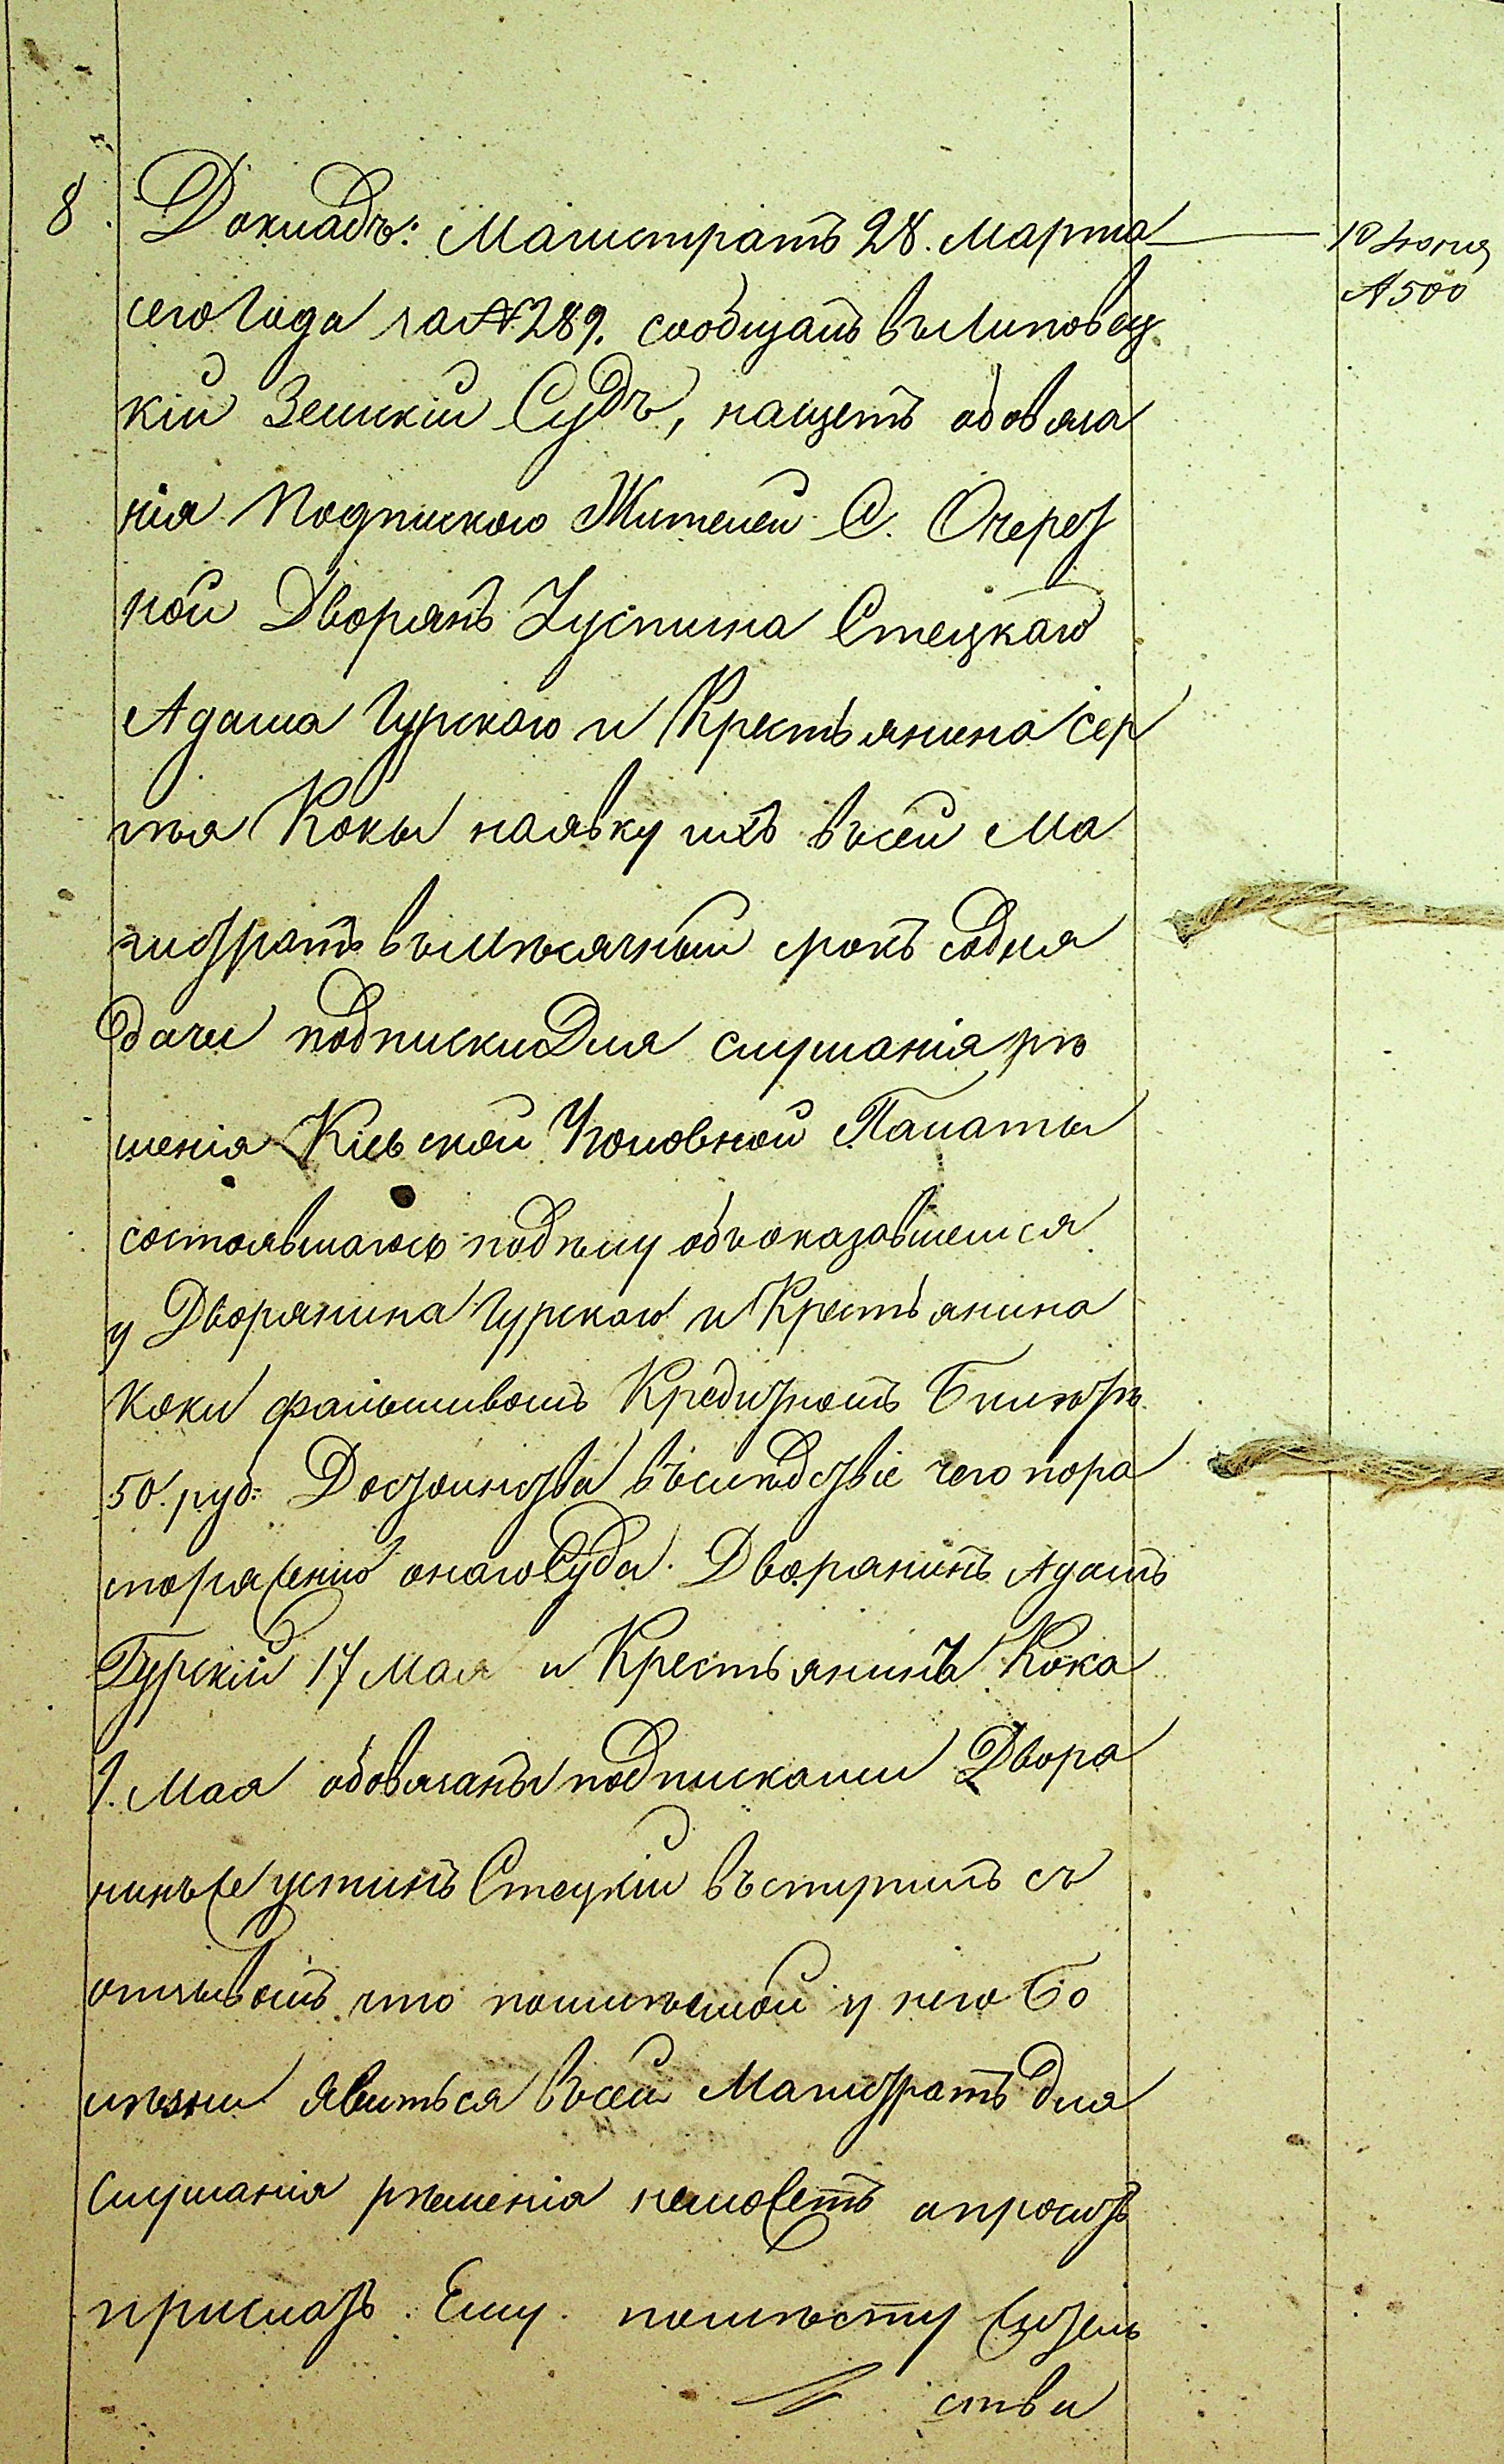 8. Докладъ: Магистратъ 28. Марта
10 Іюня
№ 500
сего Года за № 289. сообщалъ въ Липовец
кій Земскій Судъ, нащетъ обовяза
нія Подпискою Жителей С. Очерет
ной Дворянъ Іустина Стецкаго
Адама Гурского и Крестьянина Сер
гѣя Коки наявку ихъ въ сей Ма
гистратъ въ мѣсячный срокъ содня
дачи подписки Для слушанія рѣ
шенія Кіевской Уголовной Палаты
состоявшагось поделу обоказавшемся
у Дворянина Гурскаго и Крестьянина
Коки фальшивомъ Кредитномъ Билетѣ
50. руб: Достоинства въслѣдствіе чего пора
споряженію онаго Суда. Дворянинъ Адамъ
Гурскій 17 Мая и Крестьянинъ Кока
1. Мая обовязаны подписками Дворя
нинъ же Устинъ Стецкій
отзывомъ что поимѣемой у него Бо
лѣзни явиться въ сей Магистратъ для
Слушанія рѣшенія неможетъ а проситъ
прислать Ему помѣсту Житель
ства